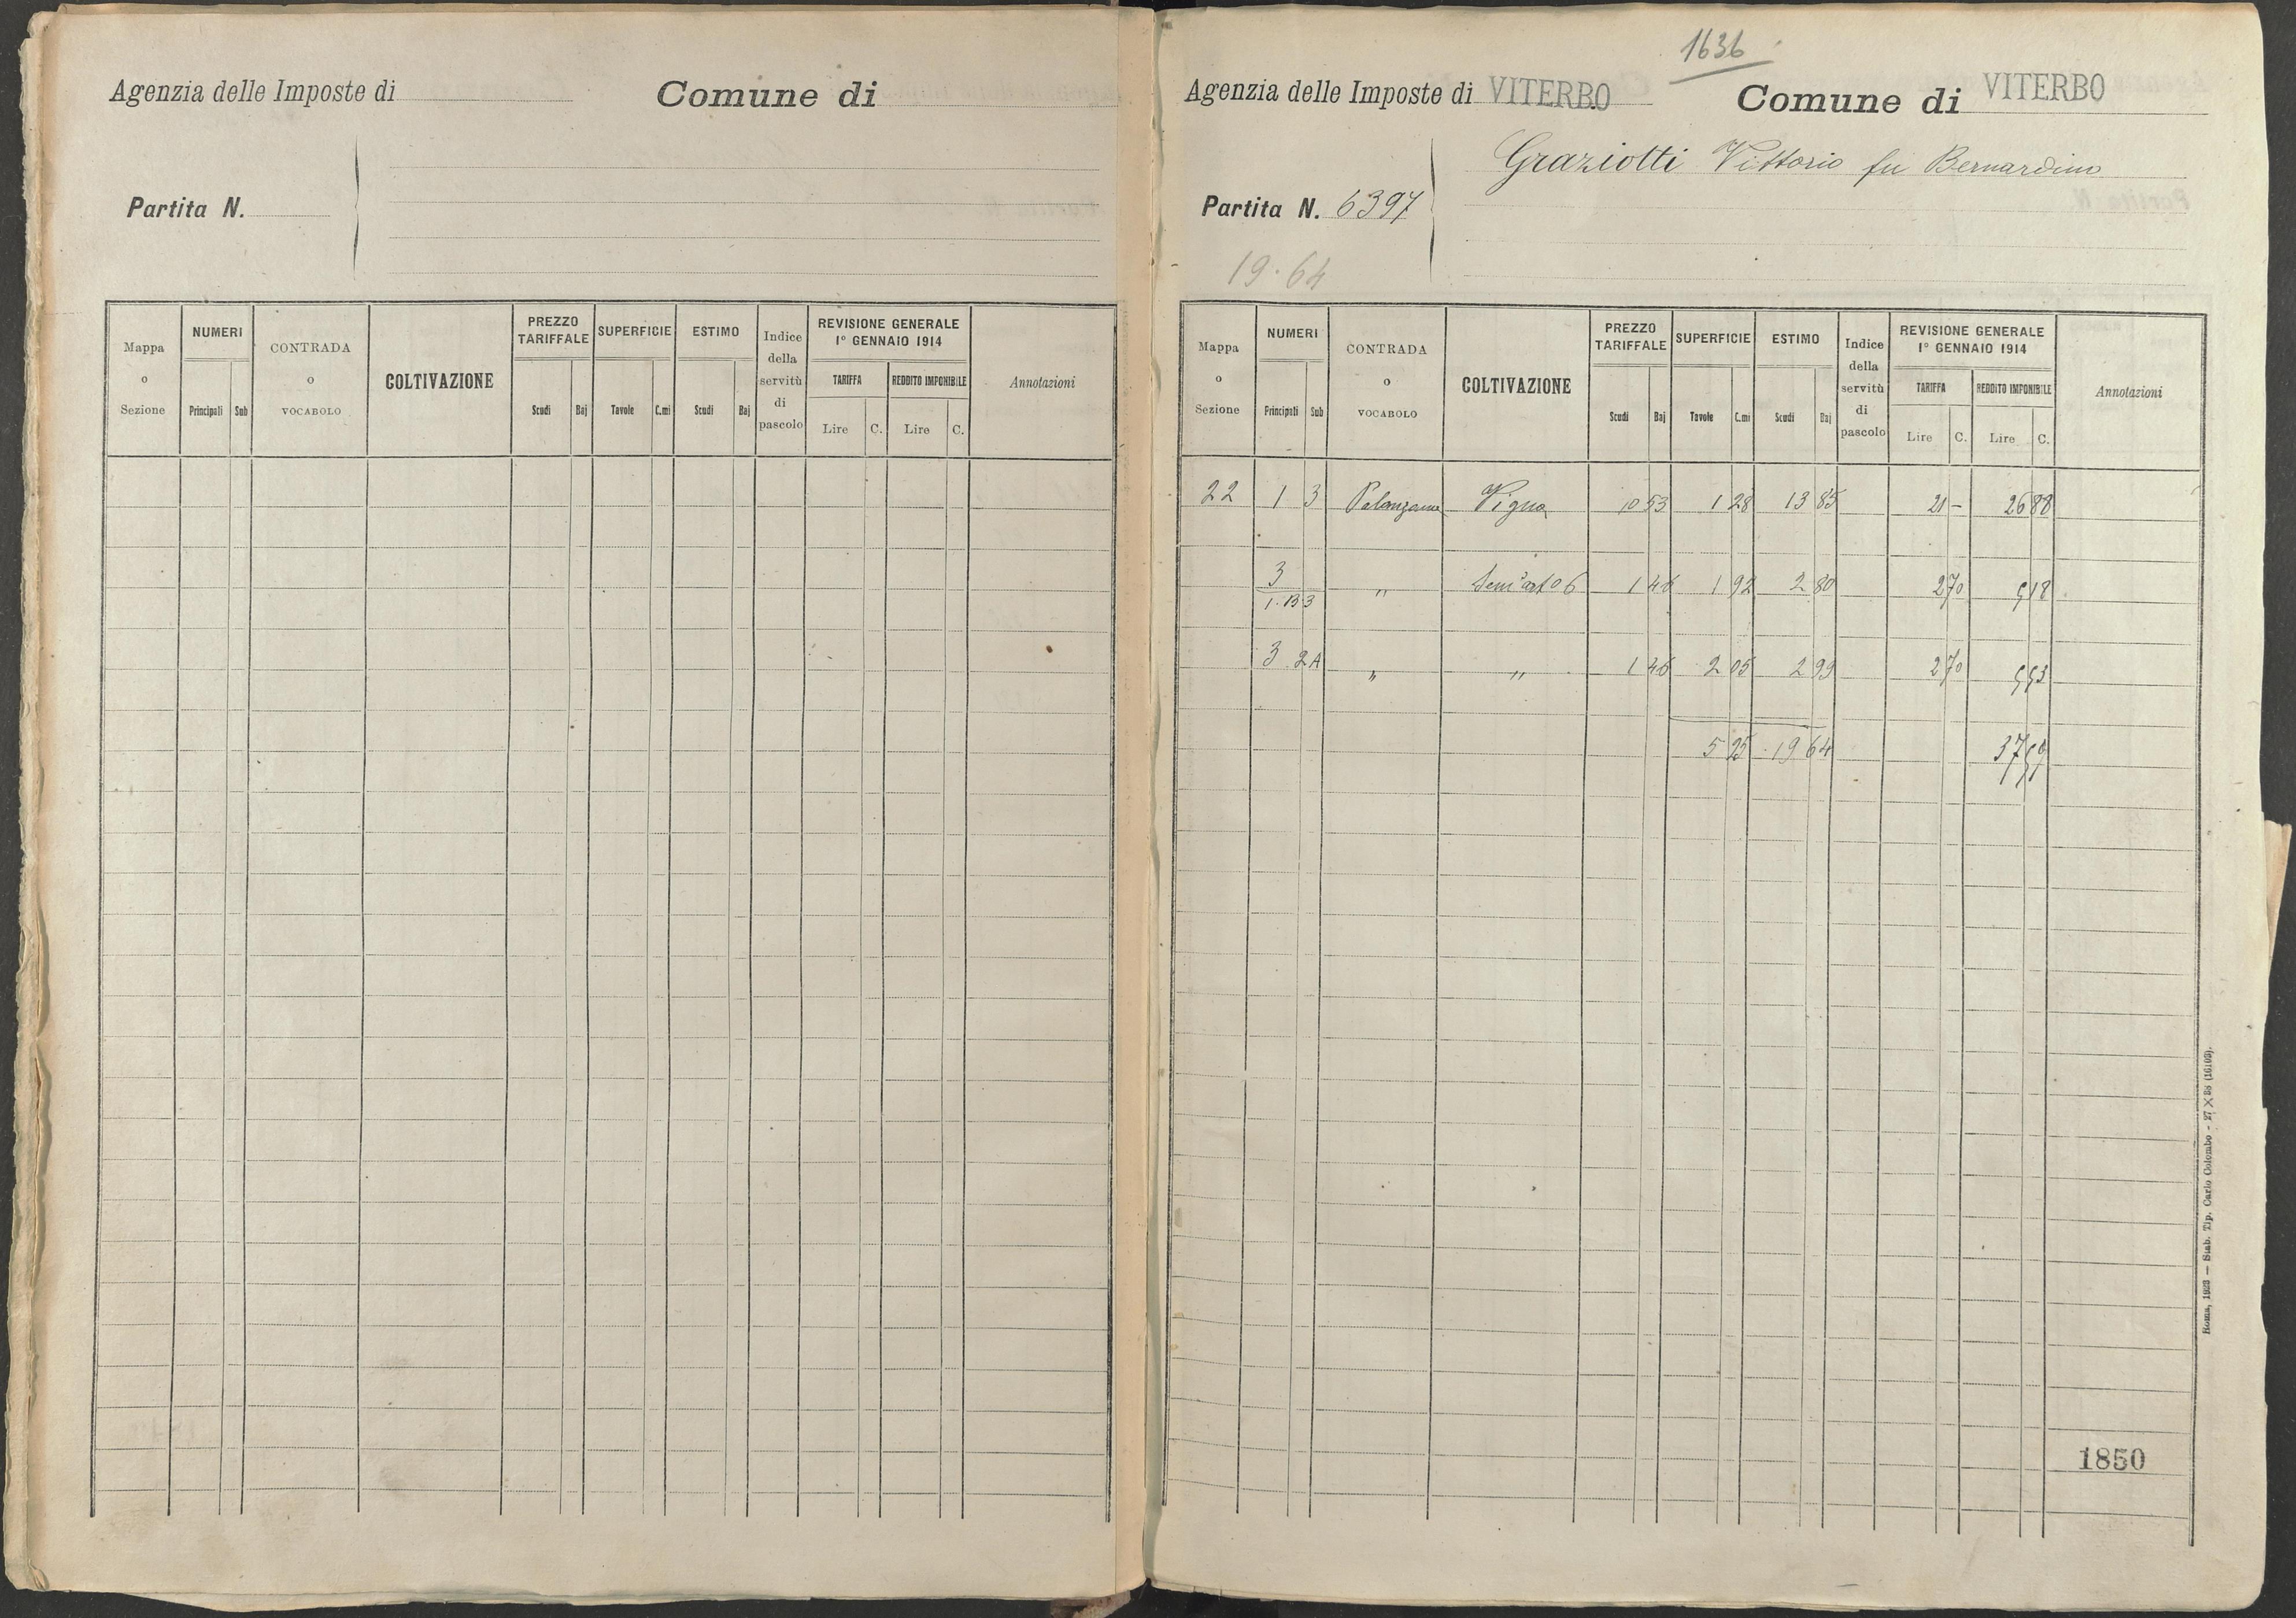 Agenzia delle Imposte di
Comune di
Partita N.
Mappa o Sezione
NUMERI
Principali Sub
CONTRADA o VOCABOLO
COLTIVAZIONE
PREZZO TARIFFALE
Scudi Baj
SUPERFICIE
Tavole C.mi
ESTIMO
Scudi Baj
Indice della servitù di pascolo
REVISIONE GENERALE
1° GENNAIO 1914
TARIFFA
Lire C.
REDDITO IMPONIBILE
Lire C.
Annotazioni
1636
Agenzia delle Imposte di VITERBO
Comune di VITERBO
Graziotti Vittorio fu Bernardino
Partita N. 6397
19.64
Mappa o Sezione
NUMERI
Principali Sub
CONTRADA o VOCABOLO
COLTIVAZIONE
PREZZO TARIFFALE
Scudi Baj
SUPERFICIE
Tavole C.mi
ESTIMO
Scudi Baj
Indice della servitù di pascolo
REVISIONE GENERALE
1° GENNAIO 1914
TARIFFA
Lire C.
REDDITO IMPONIBILE
Lire C.
Annotazioni
22 1 3 Palanzana Vigna 10 53 1 28 13 85 21 - 26 88
3 " 1 46 1 92 2 80 2 70 5 18
3 2A " " 1 46 2 05 2 99 2 70 5 53
5 25 19 64 37 59
1850
Roma, 1923 — Stab. Tip. Carlo Colombo - 27 X 38 (16103).